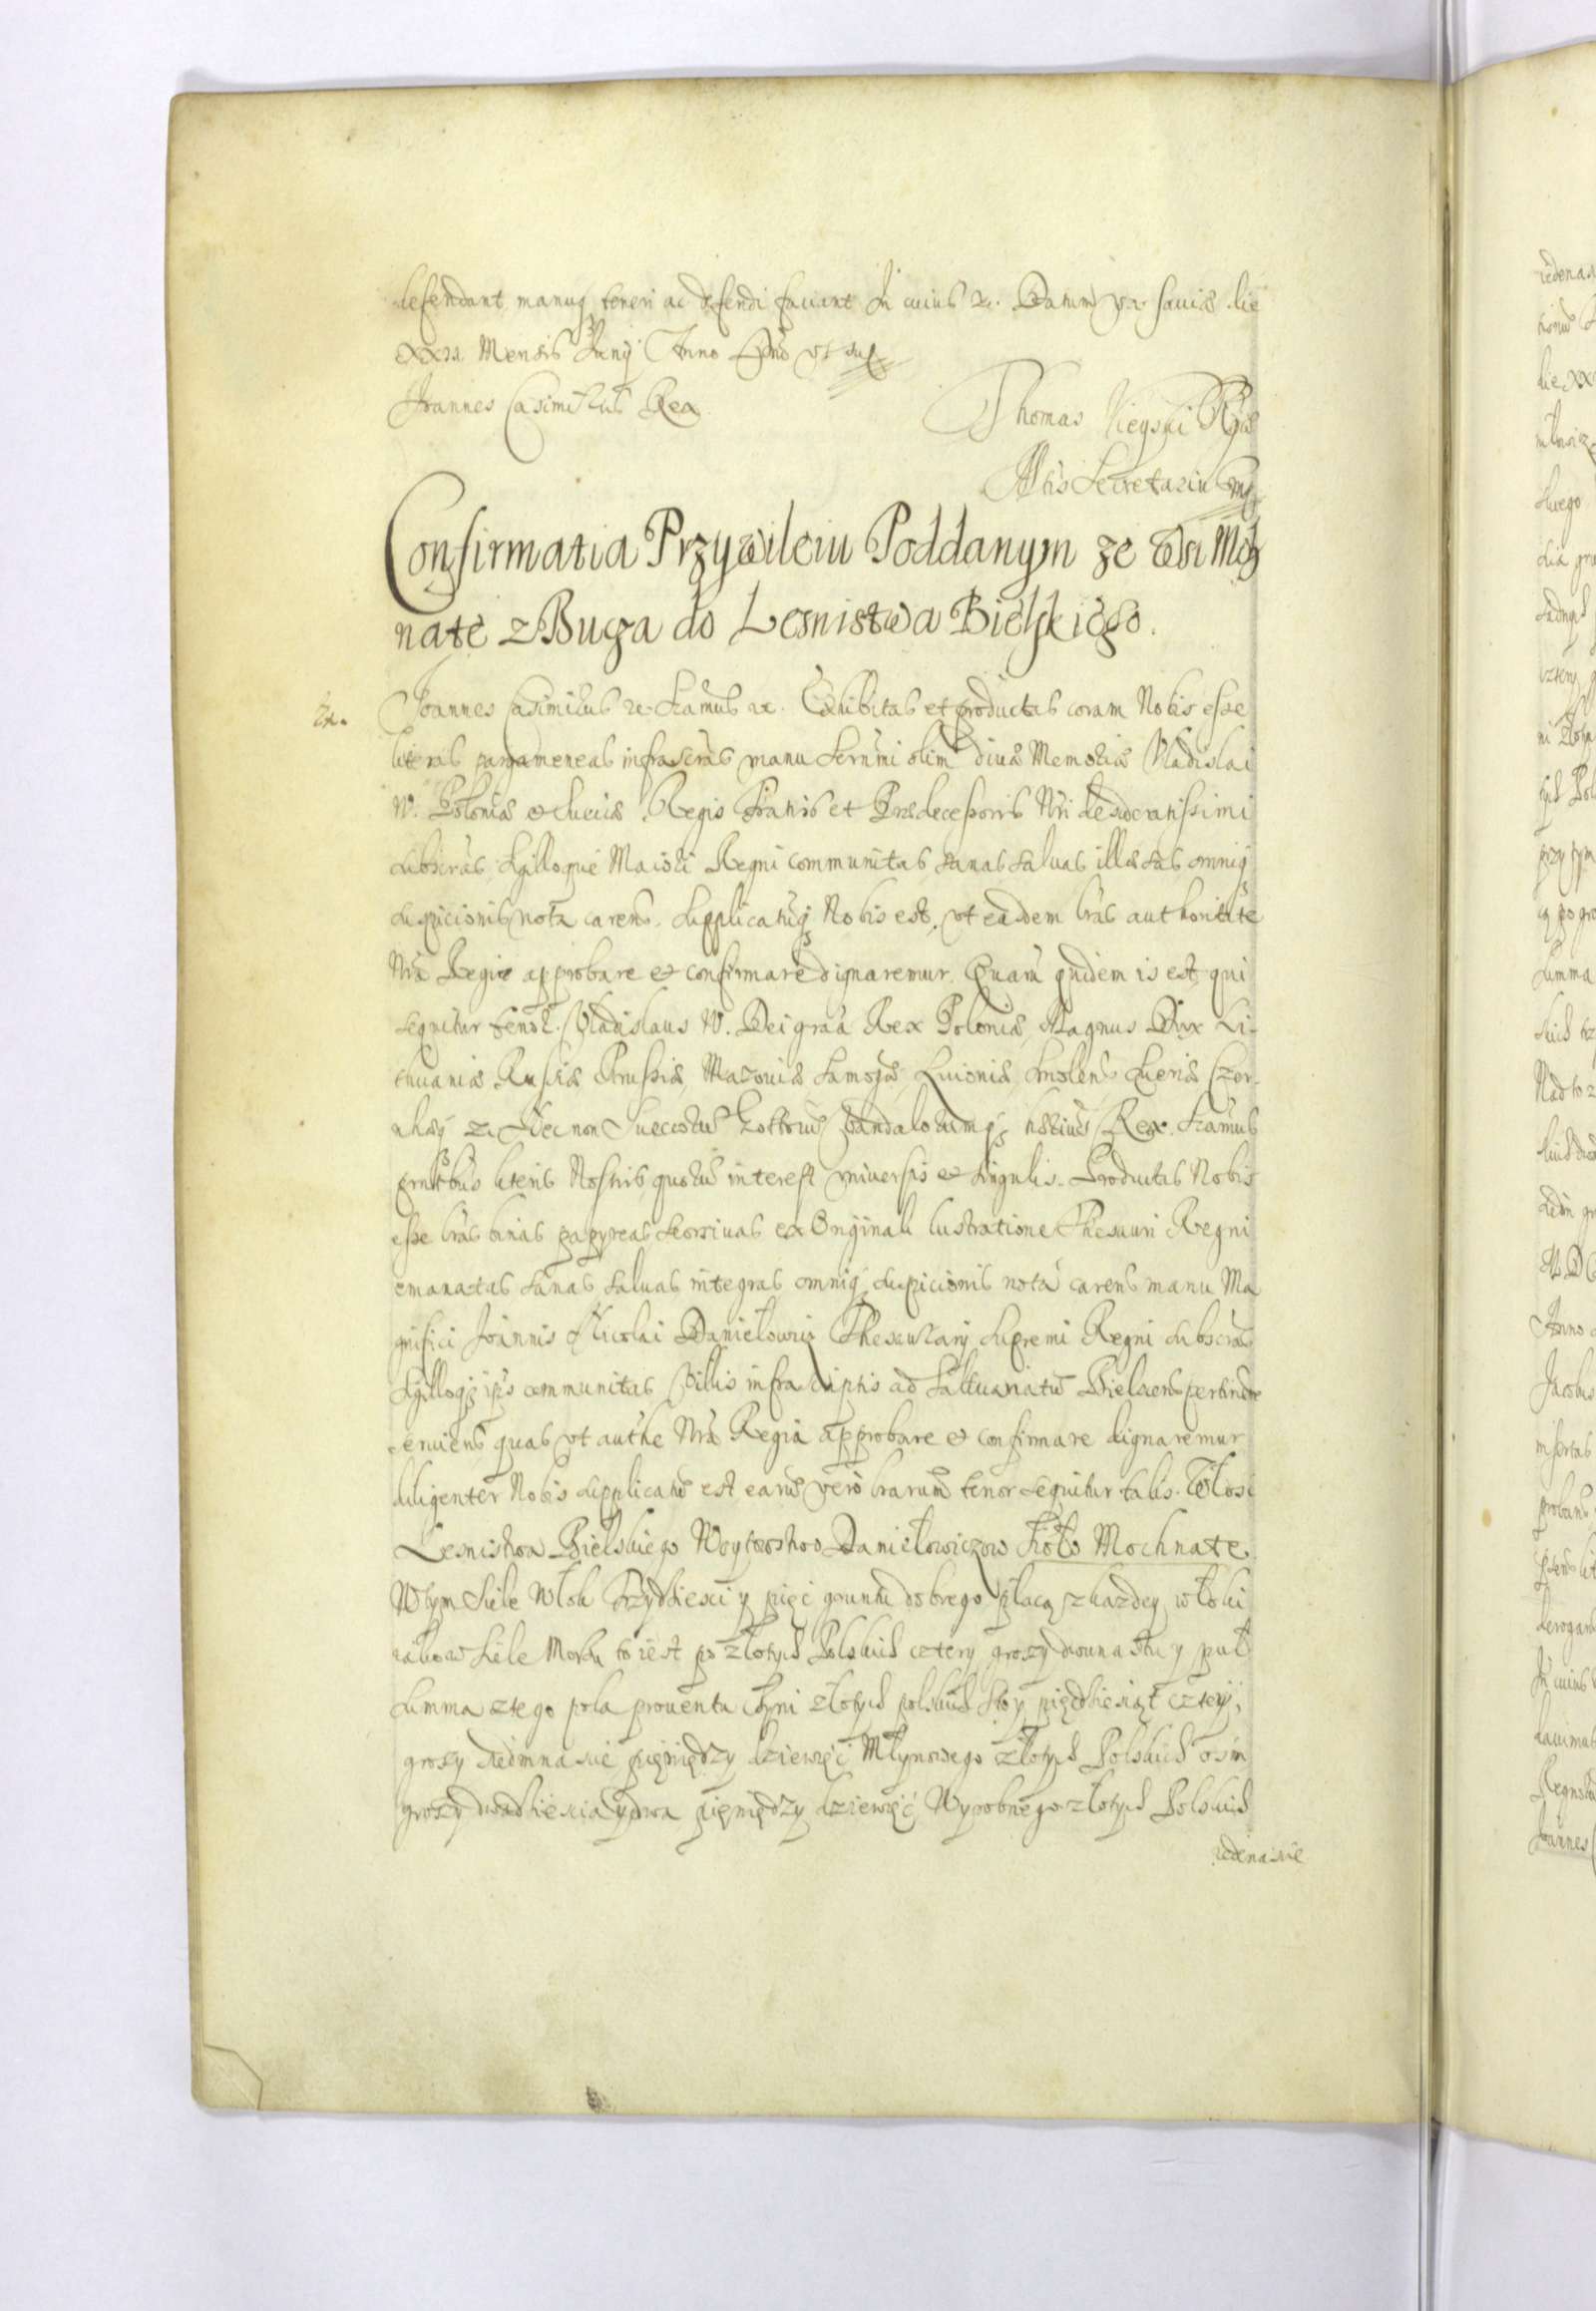 defendant manuq teneri ac defendi faciant In cuius &c. Datum Varsaviæ die
XXII Mensis Junij Anno Dno vt sup
Joannes Casimirus Rex
Thomas Uieyski Rgiæ
Mtis Secretarius mp
Confirmatia Przywileiu Poddanym ze Wsi Moh
nate z Buga do Lesnistwa Bielskiego.
Ex.
Joannes Casimirus &c. Scamus &c. Exhibitas et productas coram Nobis esse
literas pargameneas infrascras manu Sernmi olim diuæ Memoriæ Vladislai
IV. Poloniæ et Sueciæ Regis Fratris et Prædecessoris Nri desideratissimi
subscras Sigilloque Maiori Regni communitas sanas saluas illæsas omniq
suspicionis nota carens. Supplicatuq Nobis est, vt easdem lras authoritate
Nra Regia approbare et confirmare dignaremur. Quaru quidem is est qui
sequitur tenor. Vladislaus IV. Dei gra Rex Poloniæ, Magnus Dux Li-
thuaniæ Russiæ Prussiæ, Mazouiæ Samogitiæ Liuoniæ, Smolens Seueriæ Czer-
nhoviæ &c. Nec non Suecorum Gottorum Vandalorumq hærius Rex. Scamus
prntbus literis Nostris, quorum interest vniuersis et singulis. Productas Nobis
esse lras binas papyreas seorsiuas ex Originali lustratione Thesauri Regni
emanatas sanas saluas integras omniq suspicionis nota carens manu Ma
gnifici Joannis Nicolai Danielowicz Thesaurarij Supremi Regni subscras
Sigilloq ips communitas Villis infrascriptis ad Saltuariatu Bielscens pertinen
seruiens quas vt authe Nra Regia approbare et confirmare dignaremur
diligenter Nobis supplicatu est earu vero lrarum tenor sequitur talis. Włosc
Lesnistwa Bielskiego Woytowstwo Daniełowiczow Sioło Mochnate
Wtym Siele Włok Trzydziesci y pięć gruntu dobrego płacą z kazdey włoki
iako w Siele Morzu to iest po złotych Polskich cztery groszy dwunastu y puł
Summa z tego pola prouentu Czyni złotych polskich sto y pięcdziesiąt cztery,
groszy siedmnascie pięniędzy dziewięć Młynowego złotych Polskich osm
groszy dwadziescia y dwa pięniędzy dziewięć Wyrobnego złotych Polskich
iedenascie